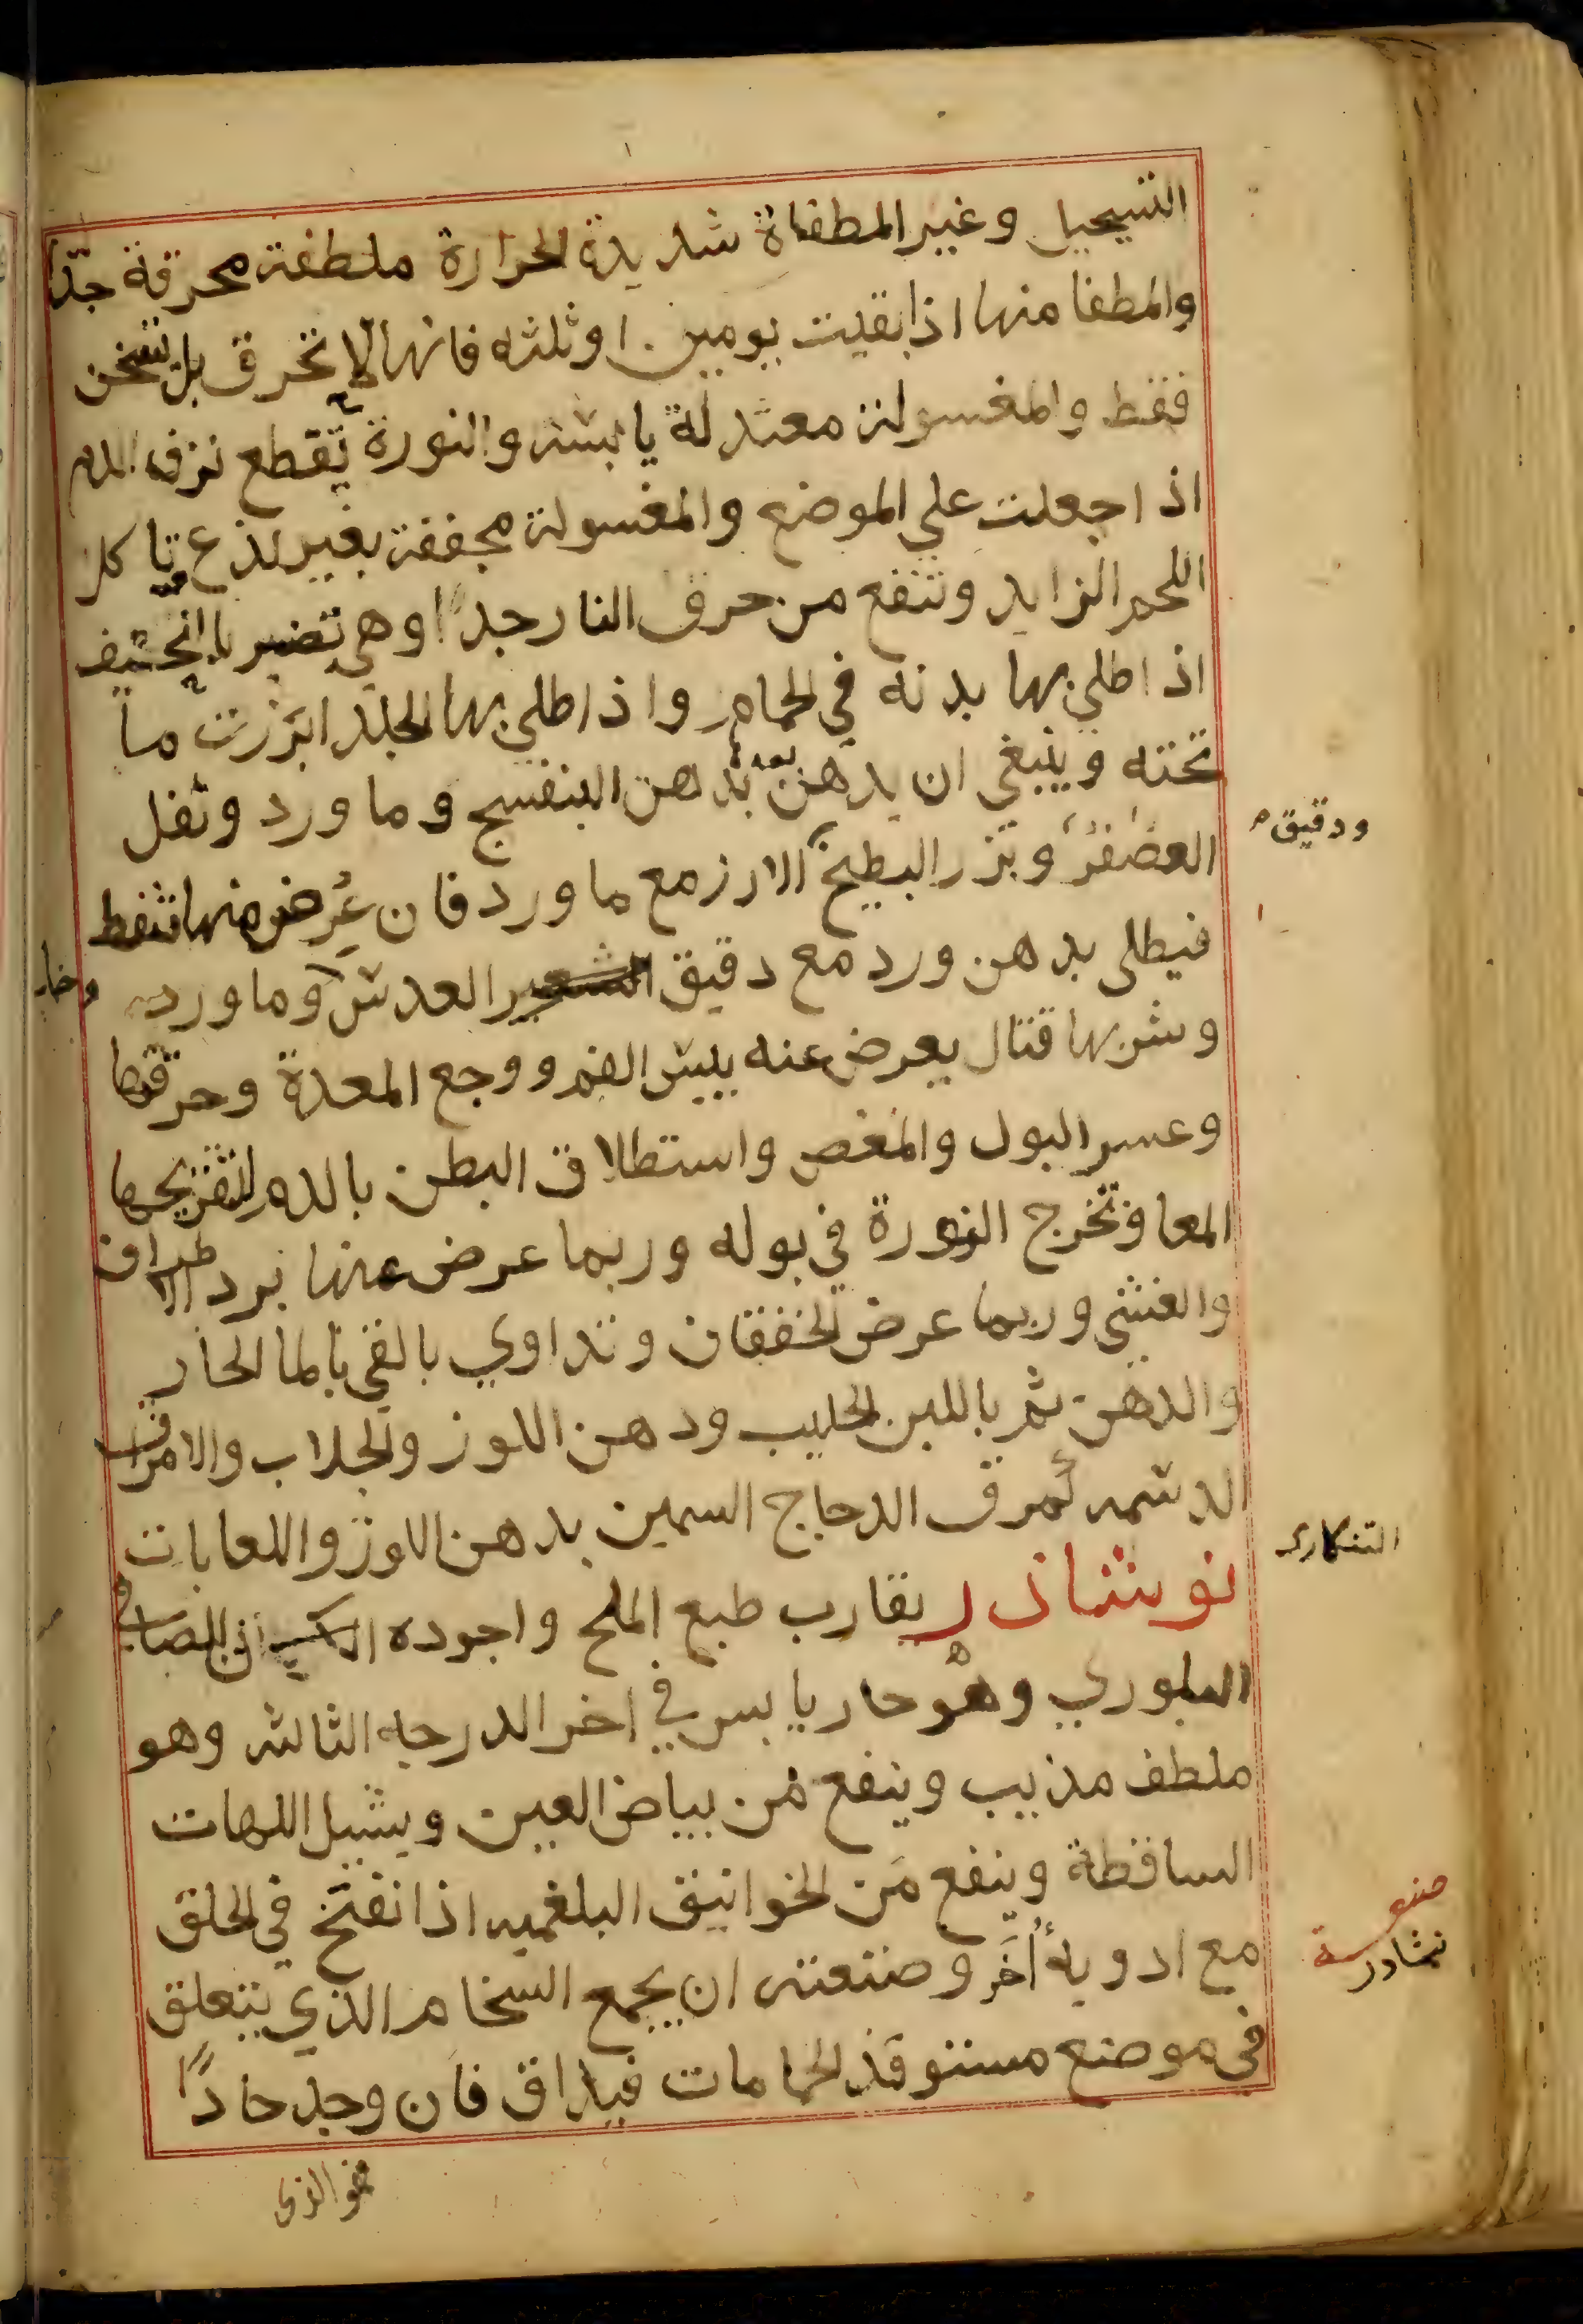 التسجيل وغير المطفاة شديدة الحرارة ملطفة محرقة جدّا
والمطفا منها اذا بقيت يومين اوثلثه فانها لا تحرق بل تسخن
فقط والمغسولة معتدلة يابسة والنورة تقطع نزف الدم
اذا جعلت علي الموضع والمغسولة مجففة بغير لذع وتاكل
اللحم الزايد وتنفع من حرق النار جداً وهي تضر
اذا طلي بها بدنه في الحمام واذا طلي بها الجلد ابرزت ما
تحته وينبغي ان يدهن بعده بدهن البنفسج وما ورد وثفل
العصفر وبزر البطيخ الارز مع ما ورد فان عرض منها تنفط
ودقيق
فيطلى بدهن ورد مع دقيق العدس وما ورد
وشربها قتال يعرض عنه يبس الفم ووجع المعدة وحرقتها
وعسر البول والمغص واستطلاق البطن بالدم لتقريحها
المعا وتخرج النورة في بوله وربما عرض عنها برد الاطراف
والغشي وربما عرض الخفقان وتداوي بالقي بالما الحار
والدهن ثم باللبن الحليب ودهن اللوز والجلاب والامراق
الدسمه كمرق الدجاج السمين بدهن اللوز واللعابات
نوشاذر يقارب طبع الملح واجوده الصافي
التنكاري
البلوري وهو حار يابس في اخر الدرجه الثالثه وهو
ملطف مذيب وينفع من بياض العين ويشيل اللهات
الساقطة وينفع من الخوانيق البلغميه اذا نفخ في الحلق
مع ادوية أخر وصنعته ان يجمع السخام الذي يتعلق
صنعة
نشادر
في موضع مستوقد الحمامات فيذاق فان وجد حادًّا
فهو الذي